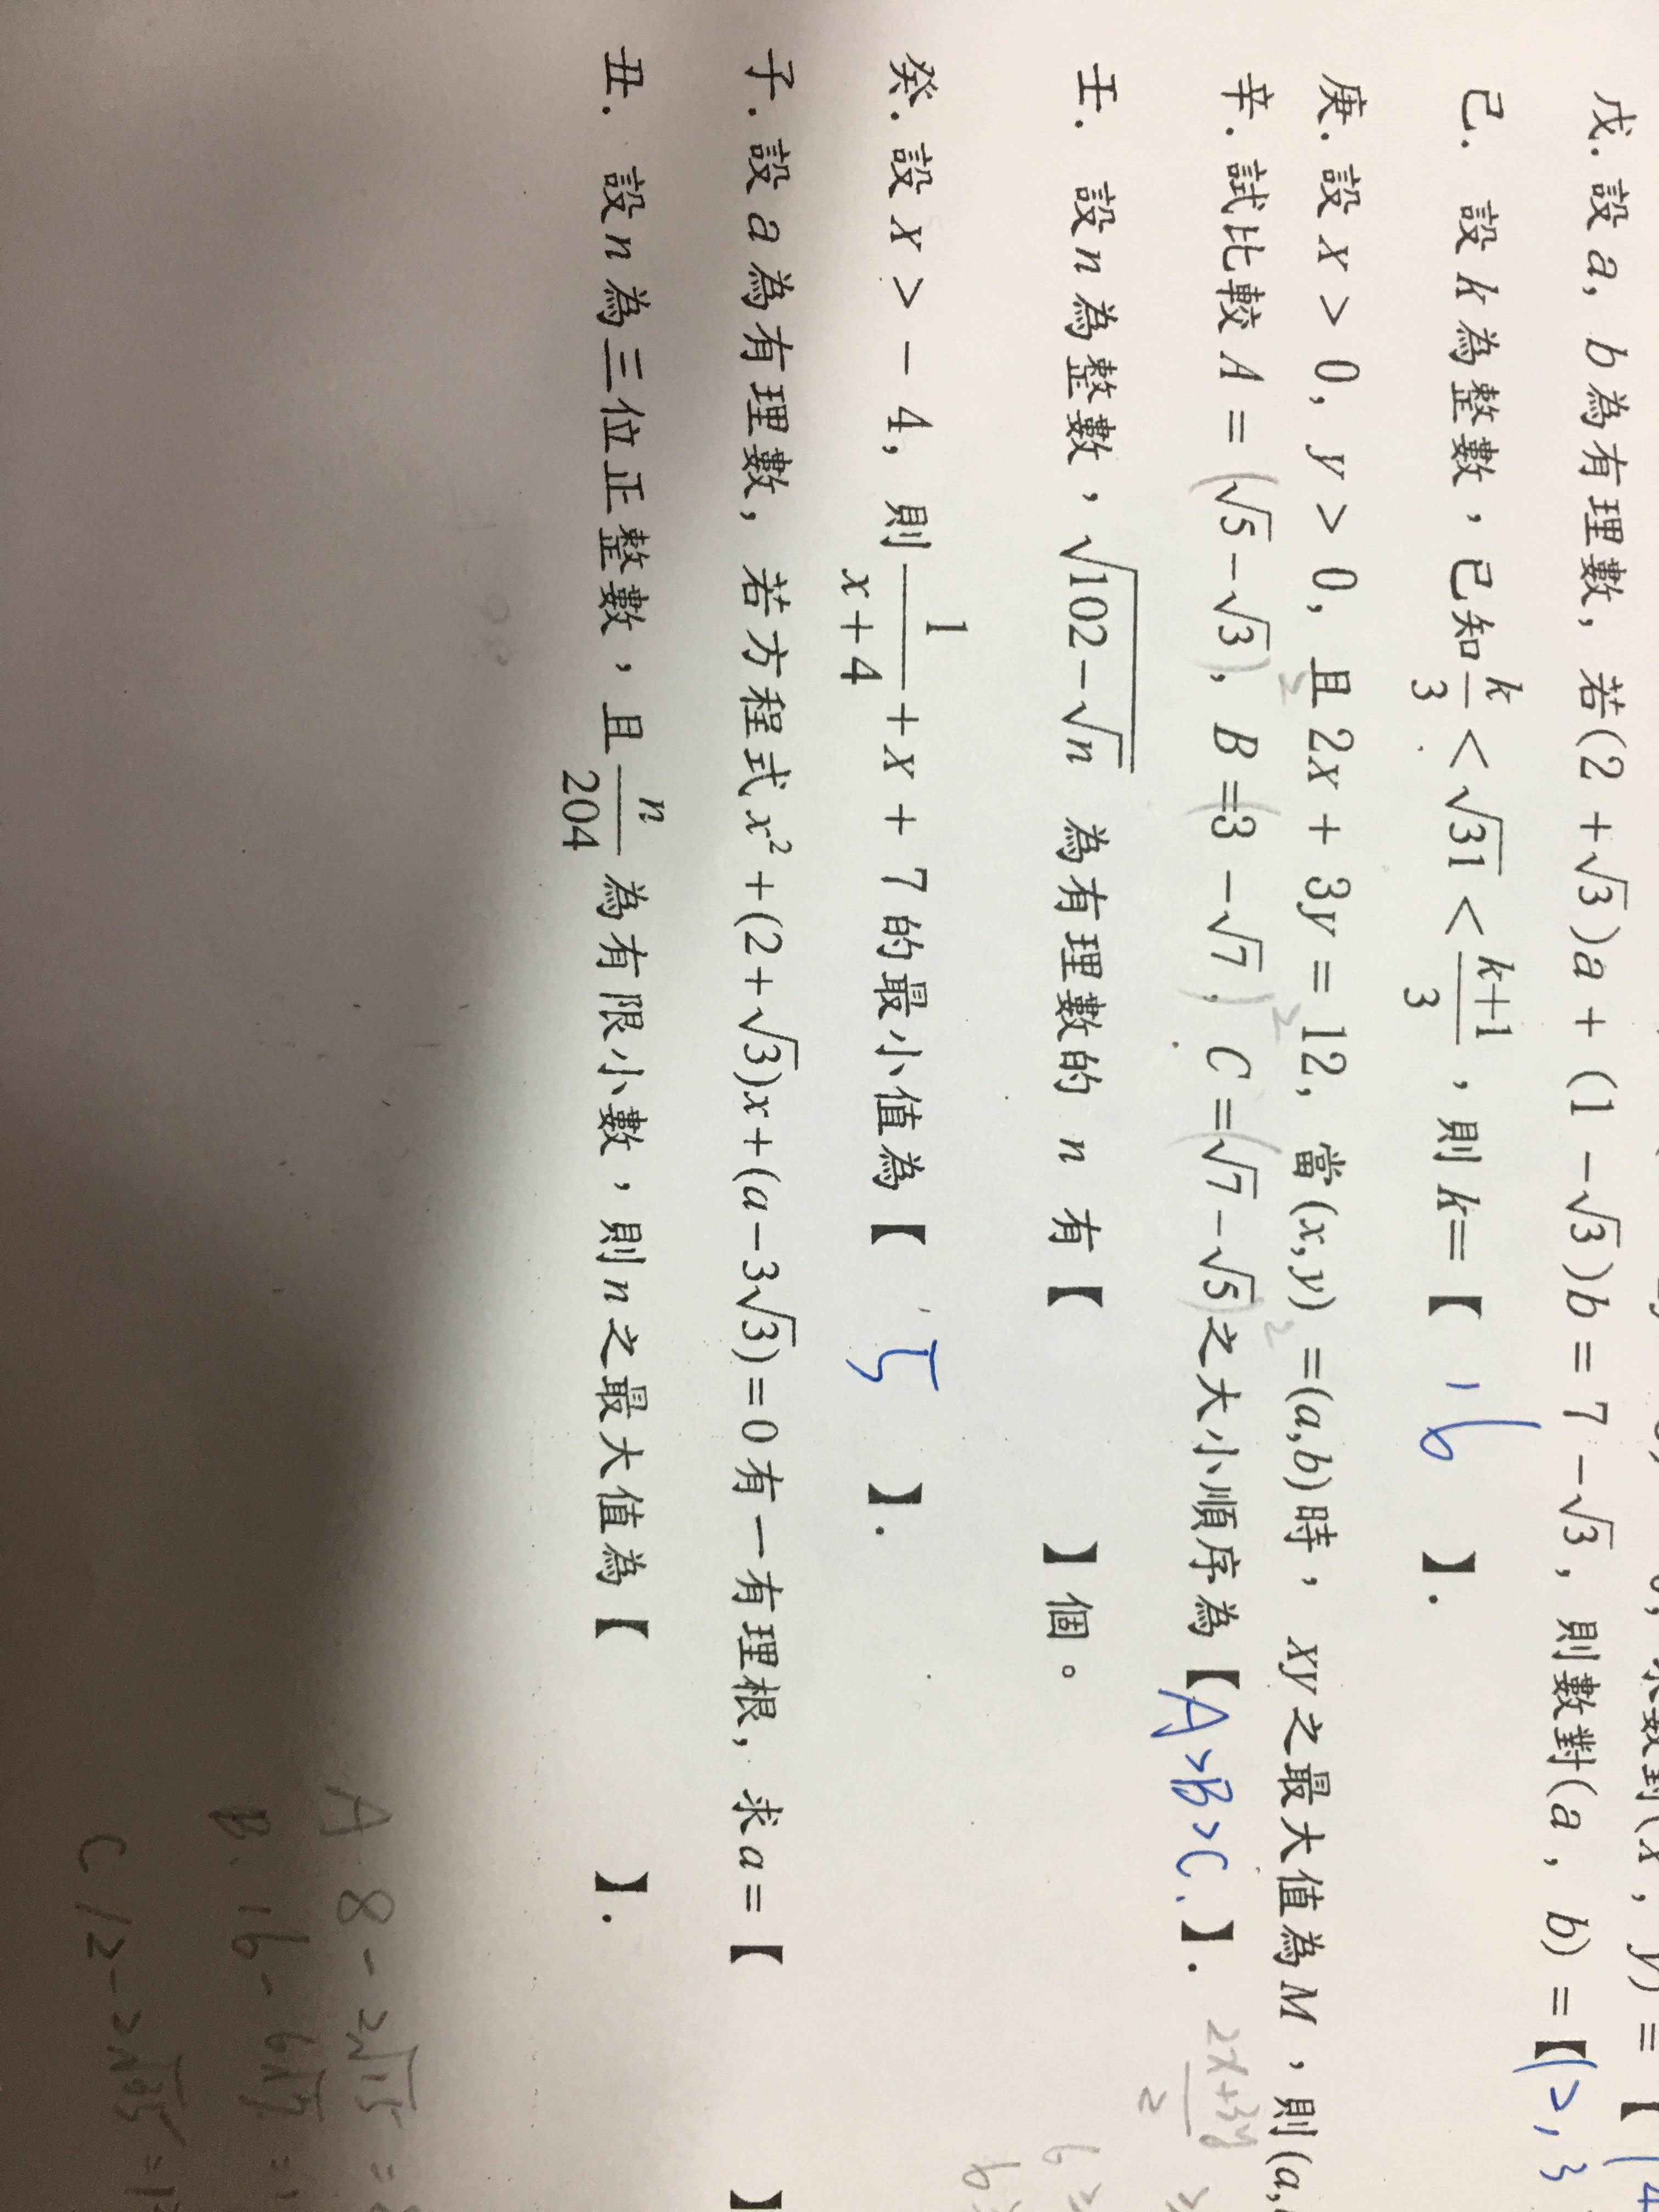 戊. 設 a, b 為有理數, 若(2 +√3)a + (1 −√3)b = 7 −√3, 則數對(a, b) =【(2, 3
己. 設 k 為整數,已知 k/3 < √31 < (k+1)/3 ,則 k=【 16 】.
庚. 設 x > 0, y > 0, 且 2x + 3y = 12, 當(x,y) =(a,b)時, xy 之最大值為 M ,則(a,
辛. 試比較 A = (√5−√3)², B =(3 −√7)², C =(√7−√5)² 之大小順序為【A>B>C.】.
2x+3y
2
壬. 設 n 為整數,√(102−√n) 為有理數的 n 有【 】個。
癸. 設 x > − 4, 則 1/(x+4) + x + 7 的最小值為【 5 】.
子. 設 a 為有理數, 若方程式 x²+(2+√3)x+(a−3√3)=0 有一有理根, 求 a =【 】
丑. 設 n 為三位正整數,且 n/204 為有限小數,則 n 之最大值為【 】.
A 8 − 2√15 =
B. 16 − 6√7 =
C 12 − 2√35 =